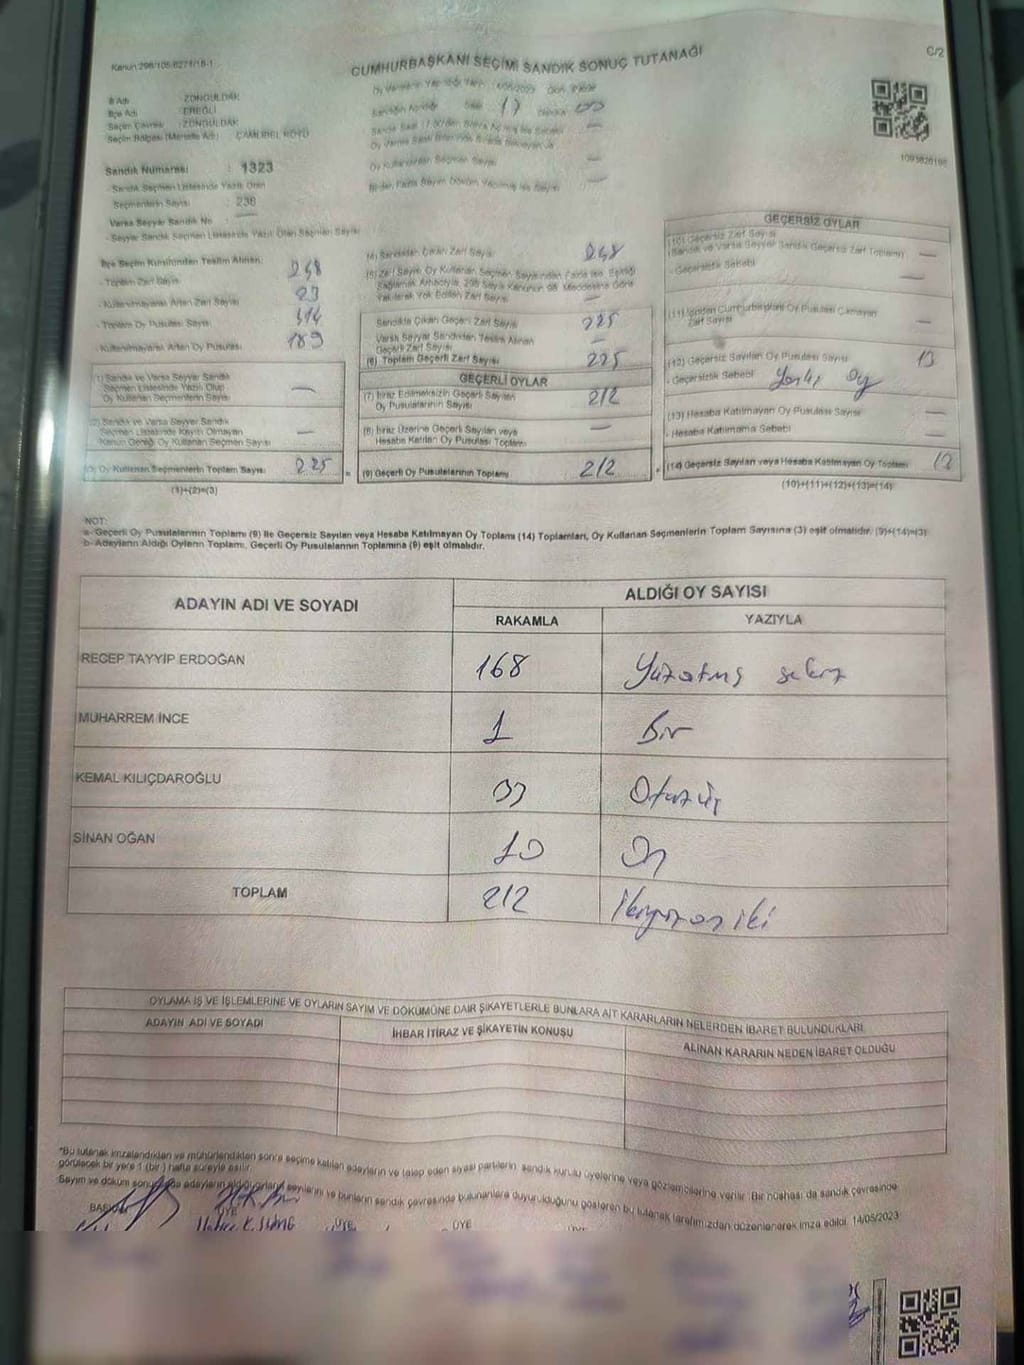 Kanun:298/105-6271/18-1
CUMHURBAŞKANI SEÇİMİ SANDIK SONUÇ TUTANAĞI
C/2
İl Adı : ZONGULDAK
İlçe Adı : EREĞLİ
Seçim Çevresi : ZONGULDAK
Seçim Bölgesi (Mahalle Adı) : ÇAMLIBEL KÖYÜ
Sandık Numarası : 1323
Sandık Seçmen Listesinde Yazılı Olan
Seçmenlerin Sayısı : 236
Varsa Seyyar Sandık No :
- Seyyar Sandık Seçmen Listesinde Yazılı Olan Seçmen Sayısı
İlçe Seçim Kurulundan Teslim Alınan;
- Toplam Zarf Sayısı 248
- Kullanılmayarak Artan Zarf Sayısı 23
- Toplam Oy Pusulası Sayısı 414
- Kullanılmayarak Artan Oy Pusulası 189
(1) Sandık ve Varsa Seyyar Sandık
Seçmen Listesinde Yazılı Olup
Oy Kullanan Seçmenlerin Sayısı —
(2) Sandık ve Varsa Seyyar Sandık
Seçmen Listesinde Kayıtlı Olmayan
Kanun Gereği Oy Kullanan Seçmen Sayısı —
(3) Oy Kullanan Seçmenlerin Toplam Sayısı 225
(1)+(2)=(3)
Oy Kullanılan Seçmen Sayısı —
(4) Sandıktan Çıkan Zarf Sayısı 248
(5) Zarf Sayısı, Oy Kullanan Seçmen Sayısından Fazla ise, Eşitliği
Sağlamak Amacıyla, 298 Sayılı Kanunun 98. Maddesine Göre
Yakılarak Yok Edilen Zarf Sayısı —
Sandıkta Çıkan Geçerli Zarf Sayısı 225
Varsa Seyyar Sandıkdan Teslim Alınan
Geçerli Zarf Sayısı —
(6) Toplam Geçerli Zarf Sayısı 225
GEÇERLİ OYLAR
(7) İtiraz Edilmeksizin Geçerli Sayılan
Oy Pusulalarının Sayısı 212
(8) İtiraz Üzerine Geçerli Sayılan veya
Hesaba Katılan Oy Pusulası Toplamı —
(9) Geçerli Oy Pusulalarının Toplamı 212
1093820198
GEÇERSİZ OYLAR
(10) Geçersiz Zarf Sayısı
(Sandık ve Varsa Seyyar Sandık Geçersiz Zarf Toplamı) —
- Geçersizlik Sebebi —
(11) İçinden Cumhurbaşkanı Oy Pusulası Çıkmayan
Zarf Sayısı —
(12) Geçersiz Sayılan Oy Pusulası Sayısı 13
- Geçersizlik Sebebi Yanlış oy
(13) Hesaba Katılmayan Oy Pusulası Sayısı —
- Hesaba Katılmama Sebebi —
(14) Geçersiz Sayılan veya Hesaba Katılmayan Oy Toplamı
(10)+(11)+(12)+(13)=(14)
NOT:
a- Geçerli Oy Pusulalarının Toplamı (9) ile Geçersiz Sayılan veya Hesaba Katılmayan Oy Toplamı (14) Toplamları, Oy Kullanan Seçmenlerin Toplam Sayısına (3) eşit olmalıdır. (9)+(14)=(3)
b- Adayların Aldığı Oyların Toplamı, Geçerli Oy Pusulalarının Toplamına (9) eşit olmalıdır.
ADAYIN ADI VE SOYADI
ALDIĞI OY SAYISI
RAKAMLA YAZIYLA
RECEP TAYYİP ERDOĞAN 168 Yüzatmış sekiz
MUHARREM İNCE 1 Bir
KEMAL KILIÇDAROĞLU 33 Otuzüç
SİNAN OĞAN 10 On
TOPLAM 212 İkiyüzoniki
OYLAMA İŞ VE İŞLEMLERİNE VE OYLARIN SAYIM VE DÖKÜMÜNE DAİR ŞİKAYETLERLE BUNLARA AİT KARARLARIN NELERDEN İBARET BULUNDUKLARI
ADAYIN ADI VE SOYADI
İHBAR İTİRAZ VE ŞİKAYETİN KONUSU
ALINAN KARARIN NEDEN İBARET OLDUĞU
*Bu tutanak imzalandıktan ve mühürlendikten sonra seçime katılan adayların ve talep eden siyasi partilerin sandık kurulu üyelerine veya gözlemcilerine verilir. Bir nüshası da sandık çevresinde
görülecek bir yere 1 (bir) hafta süreyle asılır.
Sayım ve döküm adayların aldığı oyların sayılarını ve bunların sandık çevresinde bulunanlara duyurulduğunu gösteren bu tutanak tarafımızdan düzenlenerek imza edildi. 14/05/2023
ÜYE
ÜYE
ÜYE